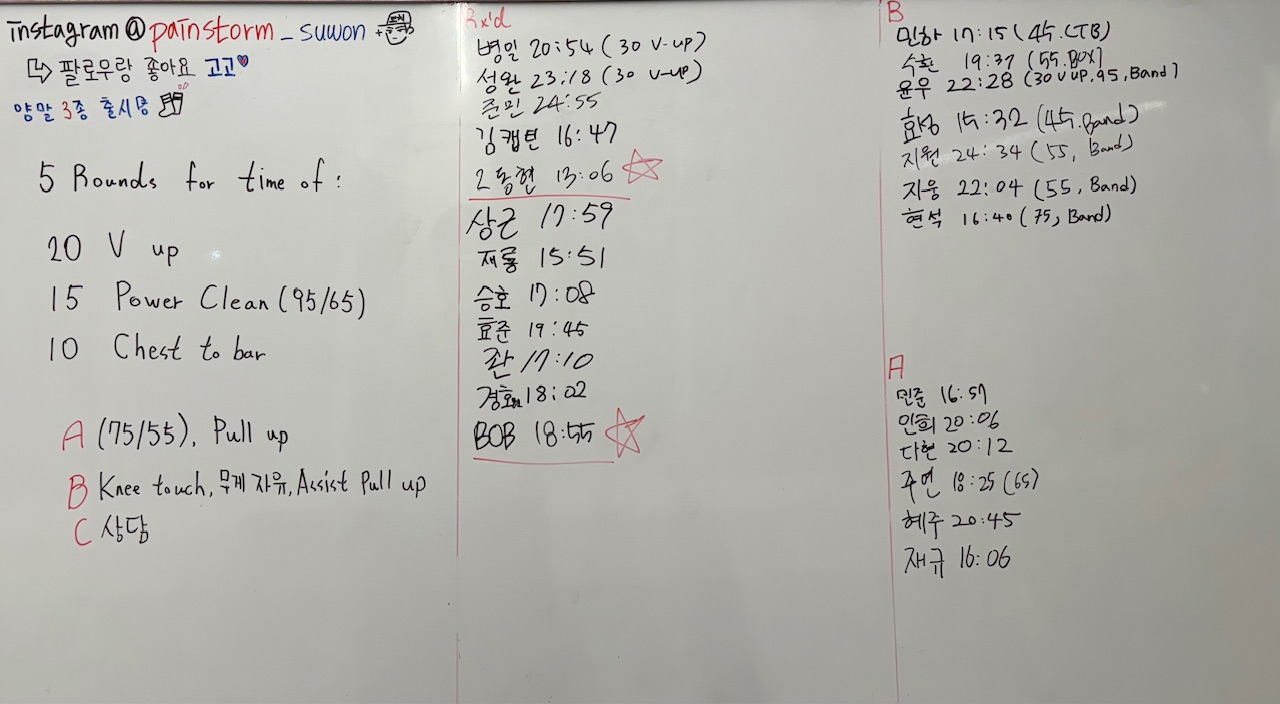 instagram@painstorm_suwon
팔로우랑 좋아요 고고
양말 3종 출시중
5 Rounds for time of :
20 V up
15 Power Clean (95/65)
10 Chest to bar
A (75/55), Pull up
B Knee touch, 무게 자유, Assist Pull up
C 상담
Rx'd
병일 20:54 (30 V-up)
성완 23:18 (30 V-up)
준민 24:55
김캡틴 16:47
2동현 13:06
상근 17:59
재룡 15:51
승호 17:08
효준 19:45
콴 17:10
경호 18:02
BOB 18:55
B
민하 17:15 (45.CTB)
수환 19:37 (55.BOX)
윤우 22:28 (30 V UP, 95, Band)
효성 15:32 (45.Band)
지원 24:34 (55, Band)
지웅 22:04 (55, Band)
현석 16:40 (75, Band)
A
민준 16:57
인희 20:06
다현 20:12
주연 18:25 (65)
혜주 20:45
재규 16:06